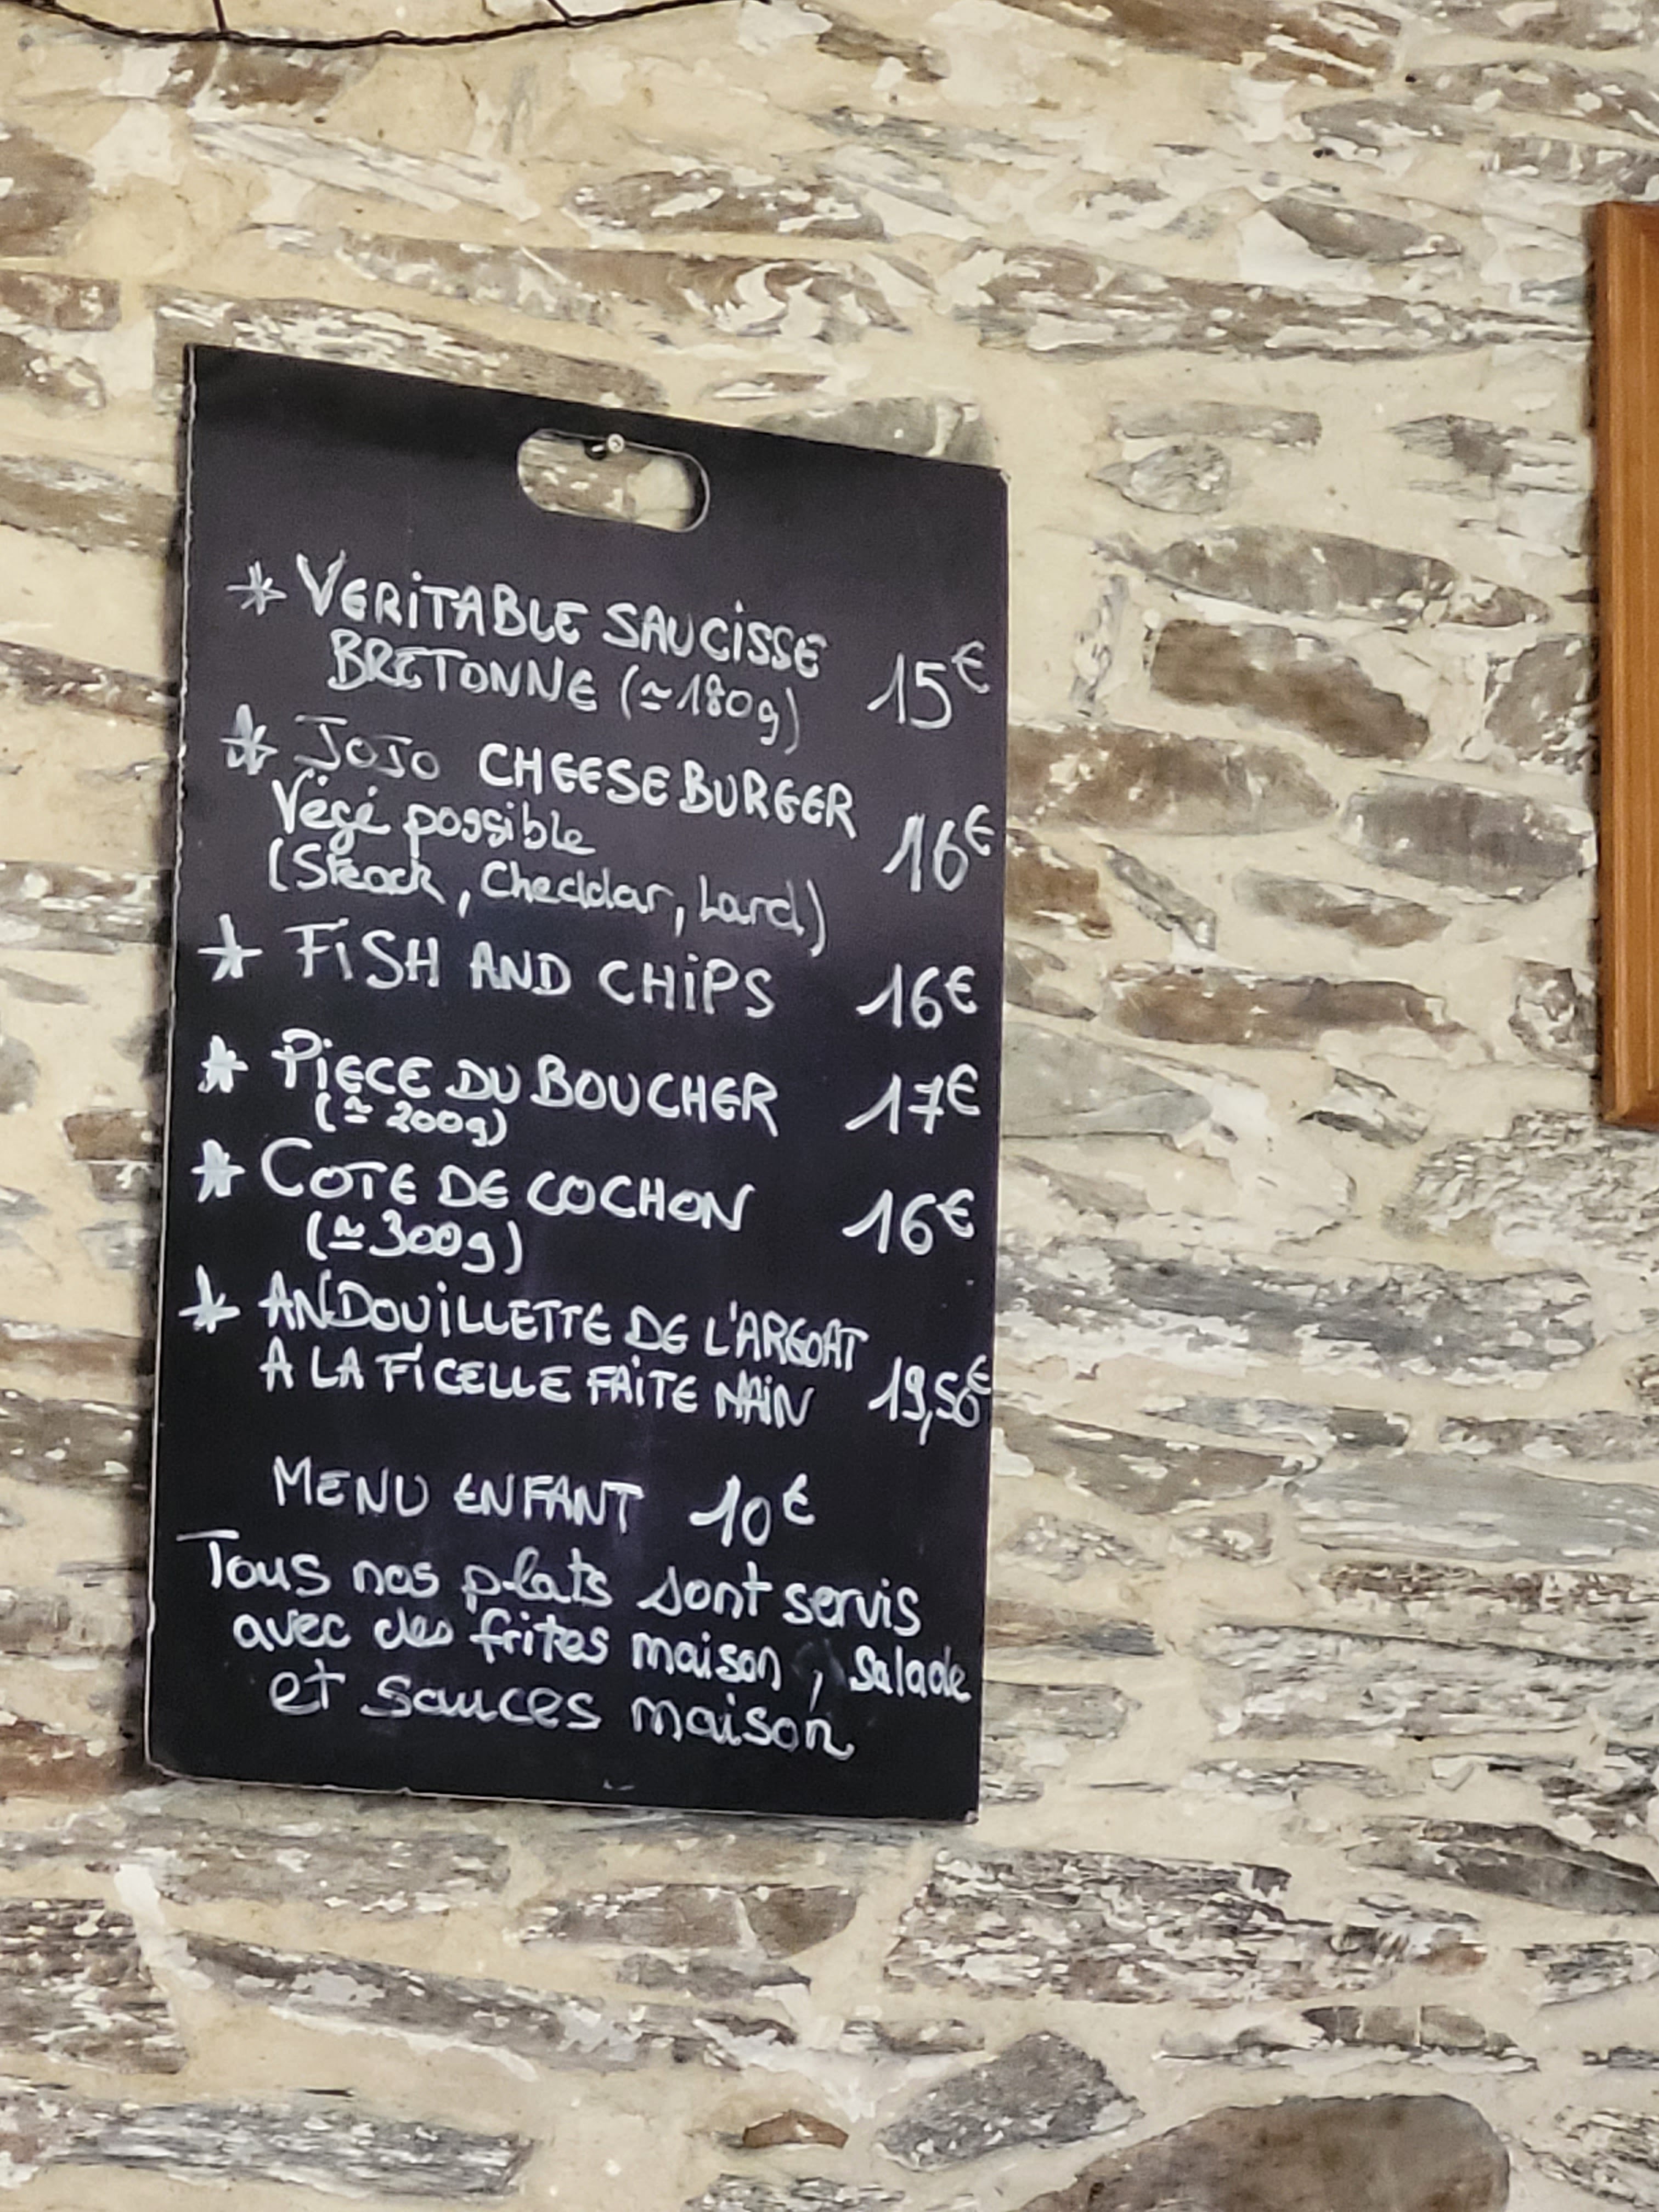 * VERITABLE SAUCISSE
BRETONNE (≃180g) 15€
* JOJO CHEESE BURGER
Végé possible 16€
(Steack, Cheddar, Lard)
* FISH AND CHIPS 16€
* PIECE DU BOUCHER 17€
(≃ 200g)
* COTE DE COCHON 16€
(≃300g)
* ANDOUILLETTE DE L'ARGOAT
A LA FICELLE FAITE MAIN 19,50€
MENU ENFANT 10€
Tous nos plats sont servis
avec des frites maison, Salade
et sauces maison